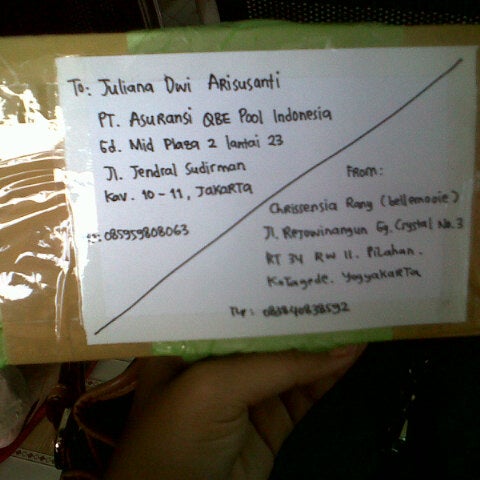 To: Juliana Dwi Arisusanti
PT. Asuransi QBE Pool Indonesia
Gd. Mid Plaza 2 lantai 23
Jl. Jendral Sudirman
Kav. 10 - 11, Jakarta
085959808063
From:
Chrissensia Rany (bellemooie)
Jl. Rejowinangun Gg. Crystal No.3
RT 34 RW 11. Pilahan.
Kotagede. Yogyakarta
Tlp: 083840838592